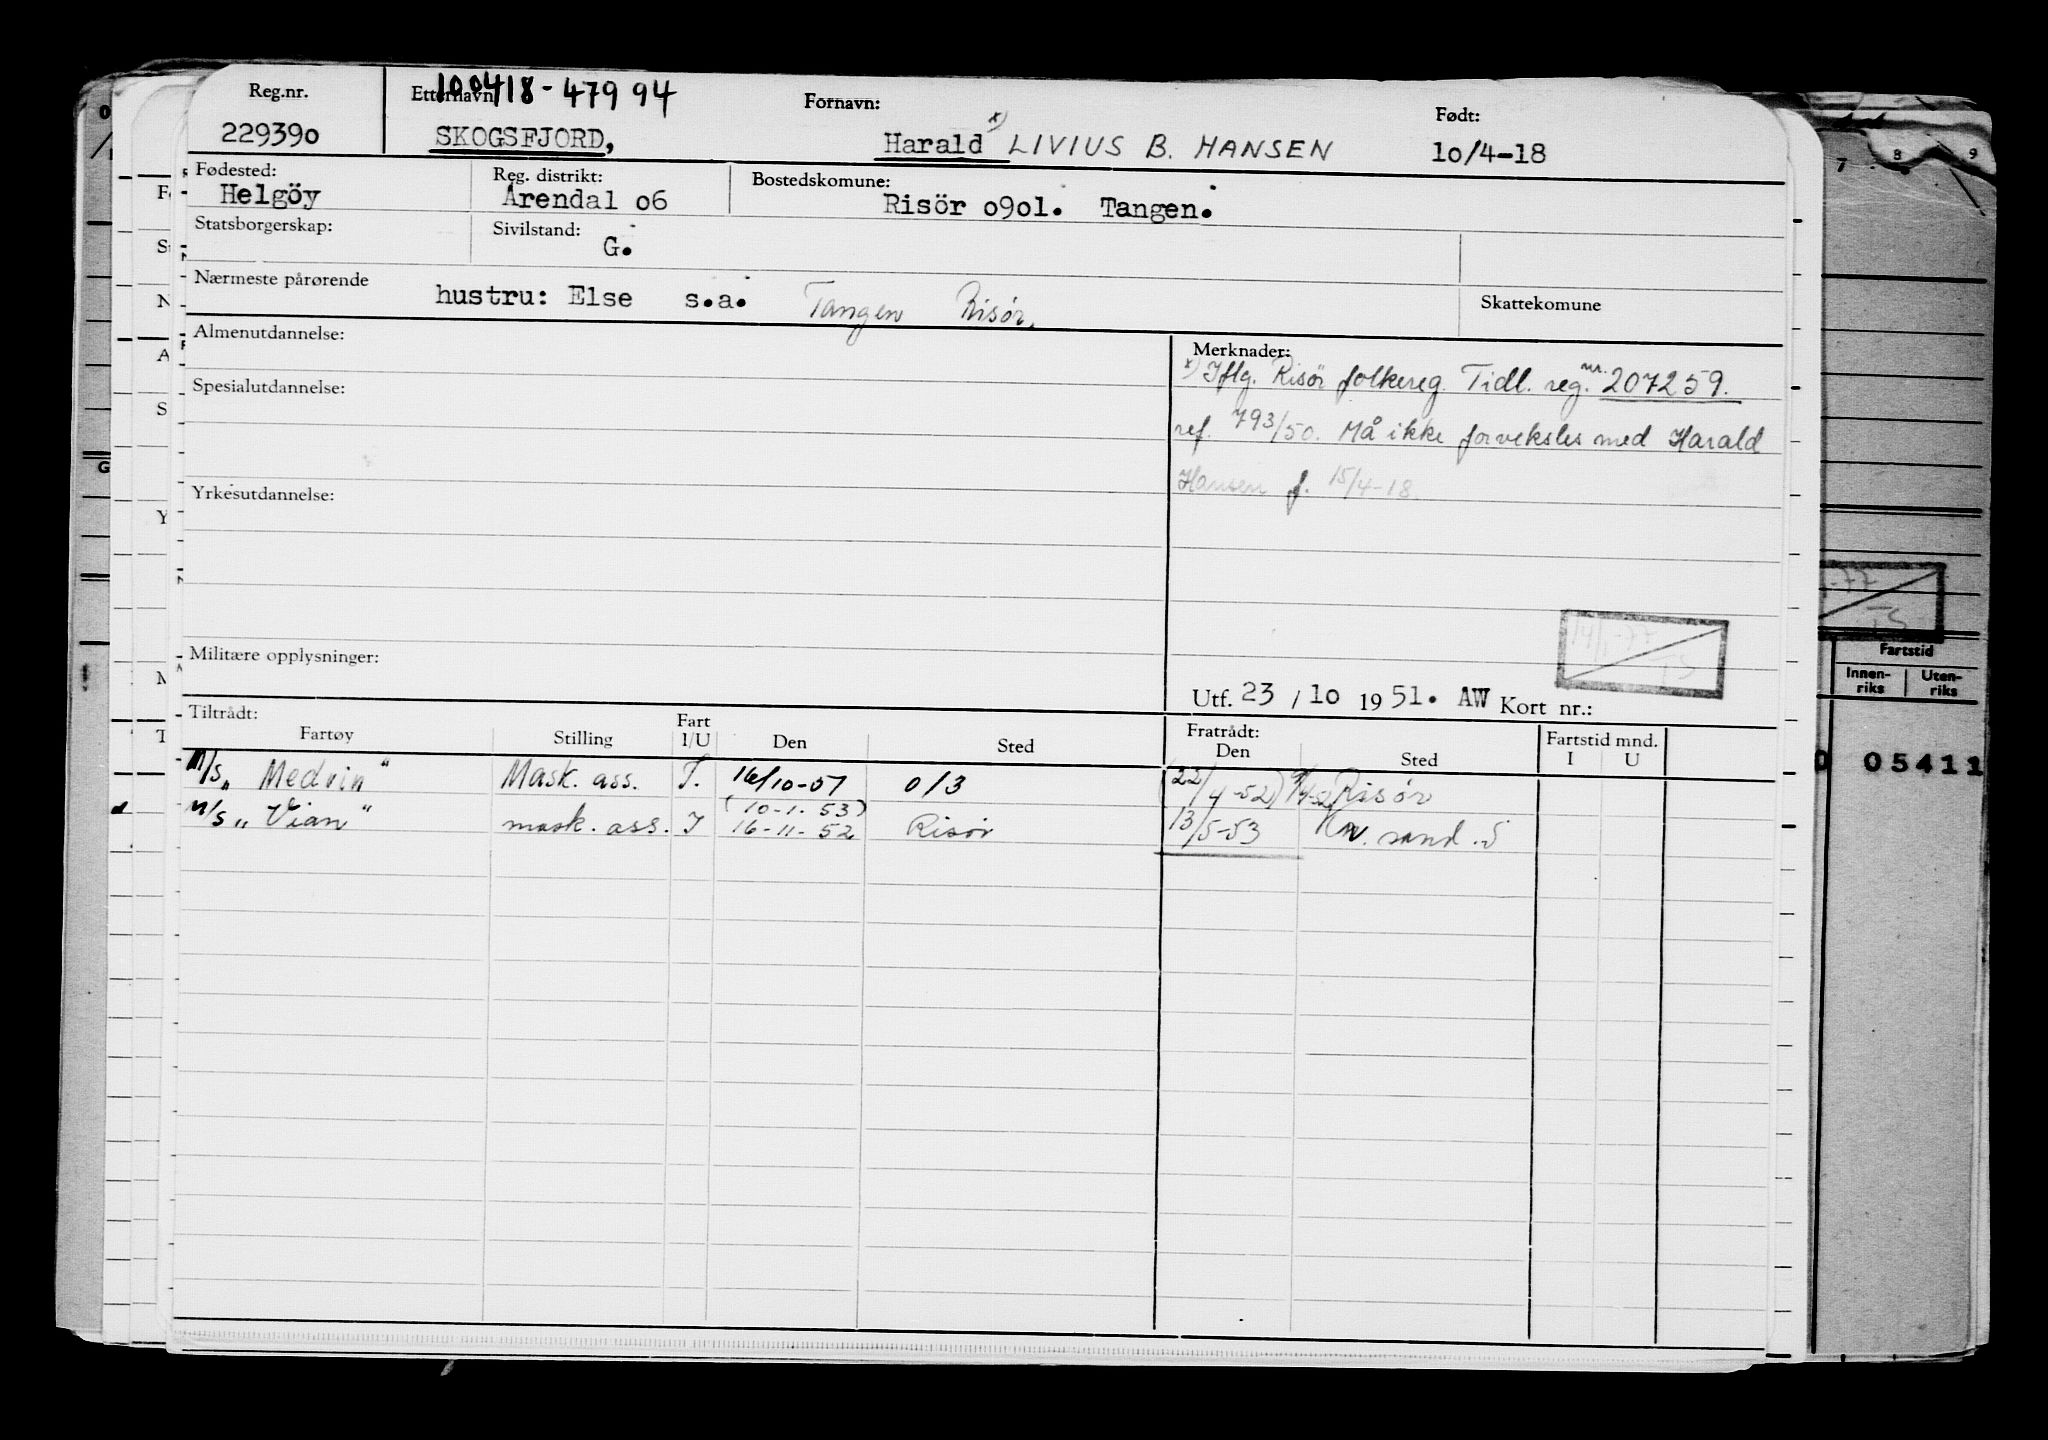 100418-47994
Reg.nr. Etternavn Fornavn: Født:
229390 SKOGSFJORD, Harald x) LIVIUS B. HANSEN 10/4-18
Fødested: Reg. distrikt: Bostedskomune:
Helgöy Arendal 06 Risör 0901. Tangen.
Statsborgerskap: Sivilstand:
G.
Nærmeste pårørende Skattekomune
hustru: Else s.a. Tangen Risør.
Almenutdannelse: Merknader:
x) Iflg. Risör folkereg. Tidl. reg. nr. 207259.
Spesialutdannelse:
ref. 793/50. Må ikke forveksles med Harald
Hansen f. 15/4-18.
Yrkesutdannelse:
14/1-77
TS
Militære opplysninger:
Utf. 23 / 10 1951. AW Kort nr.:
Tiltrådt: Fratrådt: Fartstid mnd.
Fartøy Stilling Fart I/U Den Sted Den Sted I U
M/s „Medvin" Mask. ass. I. 16/10-51 0/3 (22/4-52) Risör
(10-1. 53)
M/s „Vian" mask. ass. I 16-11-52 Risör 13/5-53 Kr.sand.S
7 8 9
-77
TS
Fartstid
Innen-riks Uten-riks
0 05411